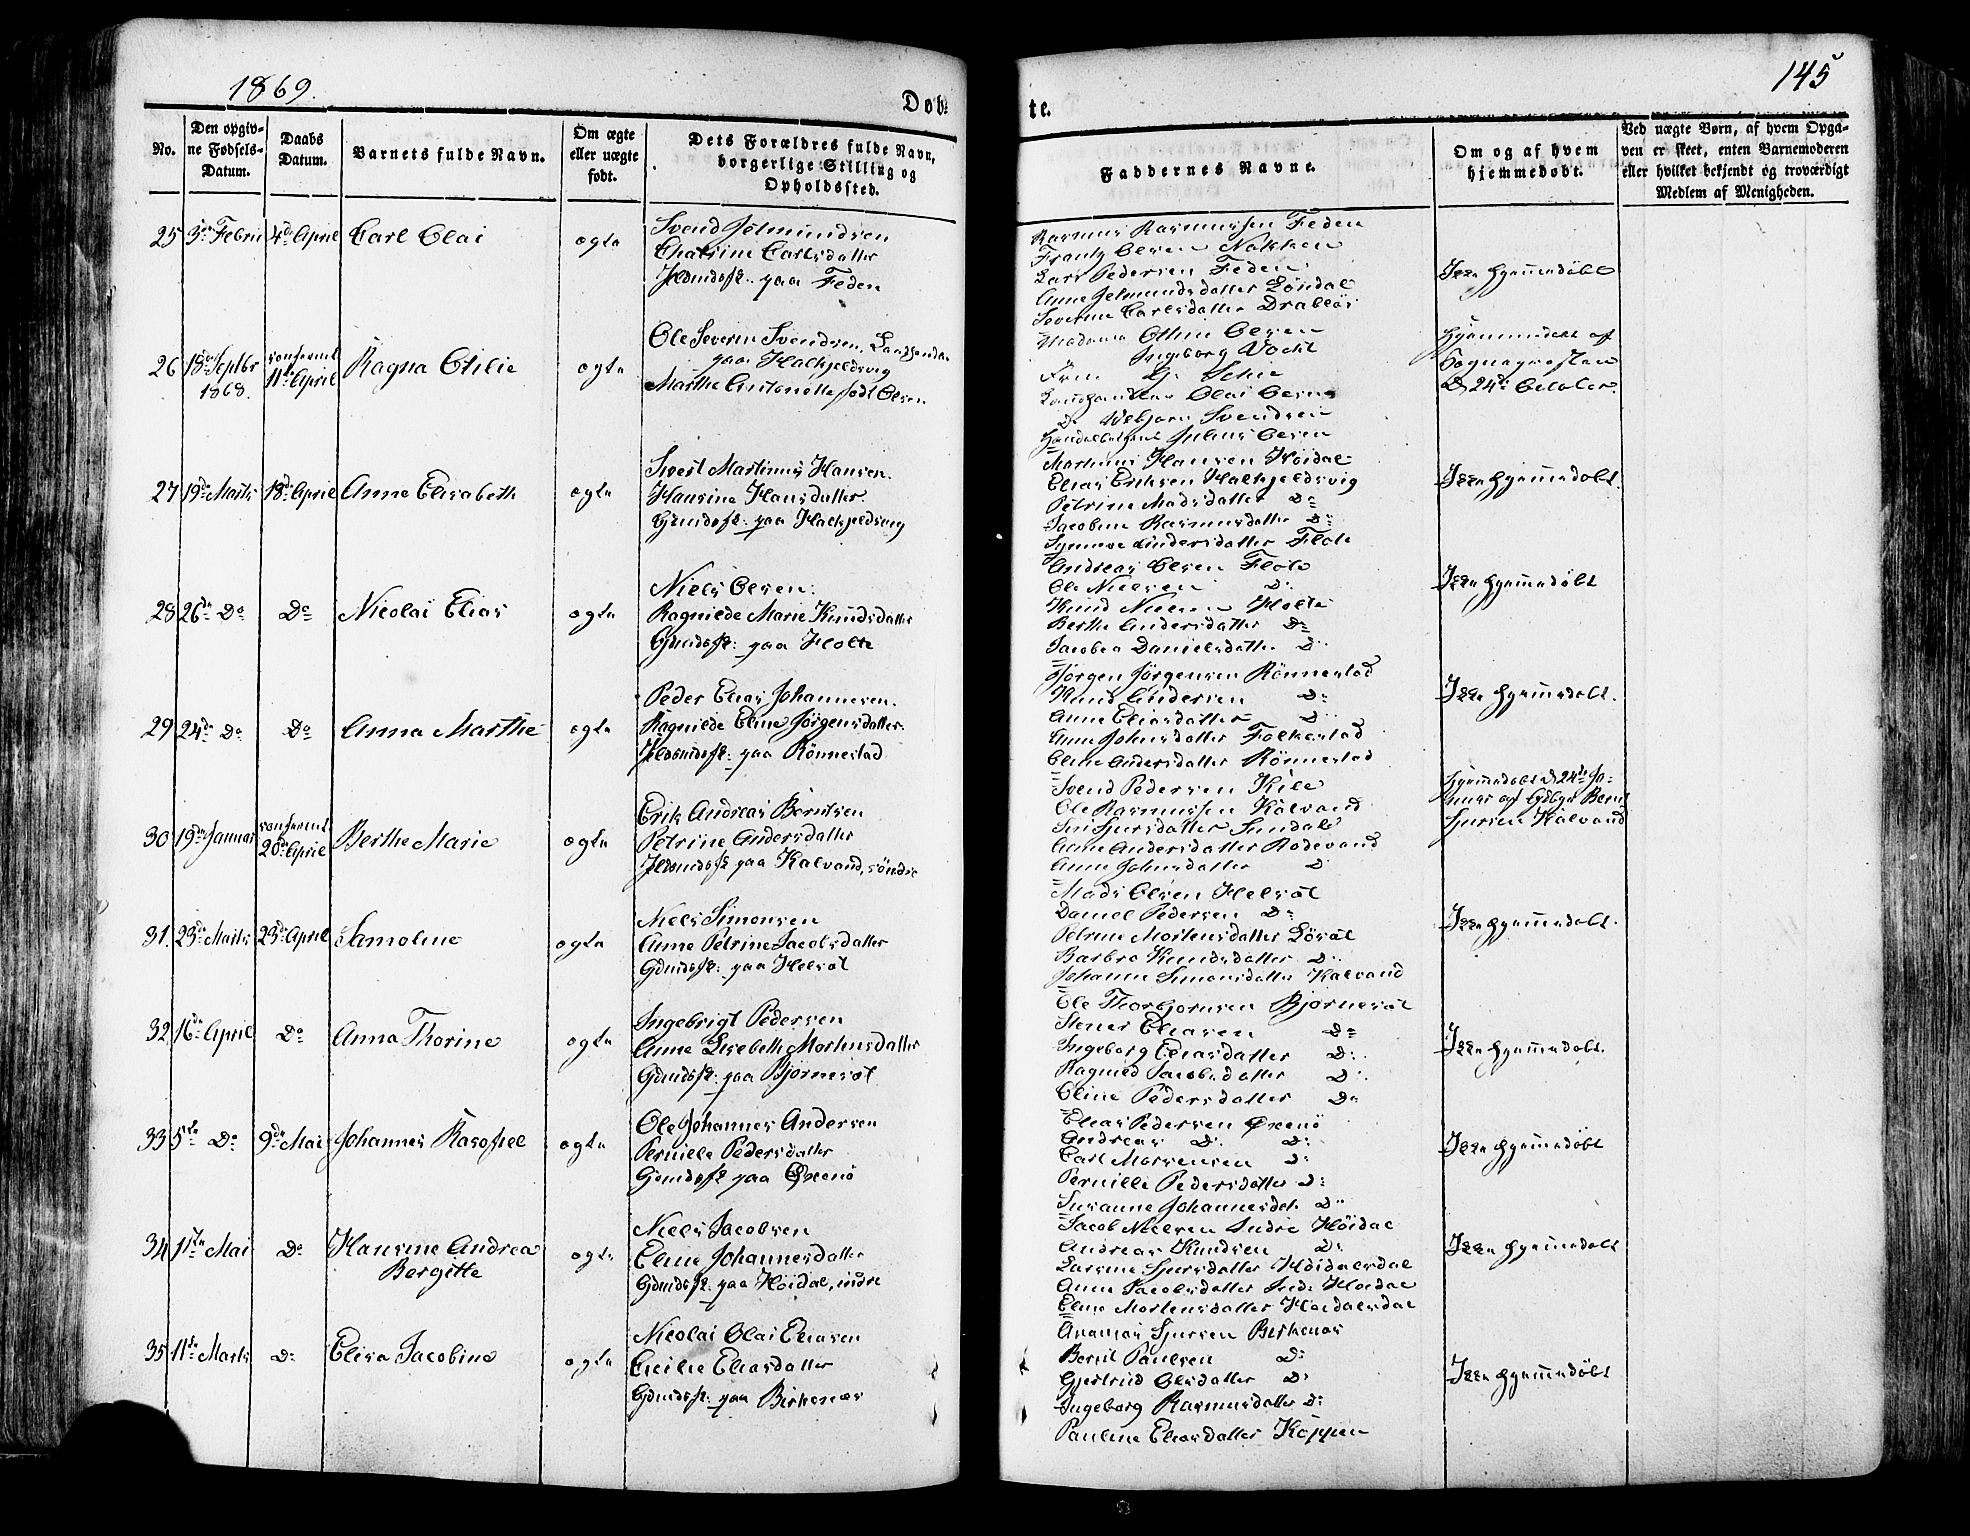 1869.
145
Døb-
te.
No.
Den opgiv-
ne Fødsels-
Datum.
Daabs
Datum.
Barnets fulde Navn.
Om ægte
eller uægte
født.
Dets Forældres fulde Navn,
borgerlige Stilling og
Opholdssted.
Faddernes Navne.
Om og af hvem
hjemmedøbt.
Ved uægte Børn, af hvem Opga-
ven er skeet, enten Barnemoderen
eller hvilket bekjendt og troværdigt
Medlem af Menigheden.
25 3die Febru 4de April Carl Olai
ægte
Svend Jetmundsen
Cathrine Carlsdatter
paa Feden
Rasmus Rasmussen Feden
Frantz Olsen Nakken
Lars Pedersen Feden
Anne Jetmundsdatter Løndal
Severine Carlsdatter Drabløs
Ikke hjemmedøbt
26 18de Septbr 1868. confirmt 11te April Ragna Otilie
ægte
Ole Severin Svendsen, Landhandler
paa Halkjeldsvig
Marthe Antonette født Olsen
Madame Oline Olsen
Ingeborg
Frøk. G.
Landhandler Olai Olsen
Do Webjørn Svendsen
Julius Olsen
Hjemmedøbt af
Sognepresten
D. 24de October.
27 19de Marts 18de April Anne Elisabeth
ægte
Sivert Martinus Hansen.
Hansine Hansdatter.
Gdmdsf: paa Halkjeldsvig
Martinus Hansen Høidal
Elias Eriksen Halkjeldsvig
Petrine Madsdatter Do
Jacobine Rasmusdatter Do
Synneve Andersdatter Flote
Ikke hjemmedøbt.
28 26de Do Do Nicolai Elias
ægte
Niels Olsen.
Ragnilde Marie Knudsdatter
Gdmdsf: paa Holte
Andreas Olsen Flote
Ole Nielsen Do
Knud Nielsen Holte
Berthe Andersdatter Do
Jacobea Danielsdatter Do
Ikke hjemmedøbt
29 24de Do Do Anna Marthe
ægte
Peder Elias Johannesen.
Ragnilde Eline Jørgensdatter.
paa Rønnestad
Jørgen Jørgensen Rønnestad
Knud Andersen Do
Anne Eliasdatter Do
Anne Johnsdatter Folkestad
Oline Andersdatter Rønnestad
Ikke hjemmedøbt.
30 19de Januar confirmt 20de April Berthe Marie
ægte
Erik Andreas Berntsen
Petrine Andersdatter
paa Kalvand, søndre
Svend Pedersen Kile
Ole Rasmussen Kalvand
Siri Sjursdatter Sundal
Anne Andersdatter Rødevand
Anne Johnsdatter Do
Hjemmedøbt d 24de Ja-
nuar af Gdbr. Bernt
Sjursen Kalvand
31. 23de Marts 23de April Samoline
ægte
Niels Simonsen
Anne Petrine Jacobsdatter
Gdmdsf: paa Helsøt
Mads Olsen Helsøt
Daniel Pedersen Do
Petrine Mortensdatter Løsøt
Barbro Knudsdatter Do
Johanne Simonsdatter Kalvand
Ikke hjemmedøbt.
32 16de April Do Anna Thorine
ægte
Ingebrigt Pedersen
Anne Lisebeth Mortensdatter
Gdmdsf: paa Bjørnesøt
Ole Thorbjørnsen Bjørnesøt
Stener Eliasen Do
Ingeborg Eliasdatter Do
Ragnild Jacobsdatter Do
Oline Pedersdatter Do
Ikke hjemmedøbt.
33 5te Do 9de Mai Johannes
ægte
Ole Johannes Andersen
Pernille Pedersdatter
Gdmdsf paa Ørenø
Elias Pedersen Ørenø
Andreas Do Do
Carl Mortensen Do
Pernille Pedersdatter Do
Susanne Johannesdt. Do
Ikke hjemmedøbt
34 11te Mai Do Hansine Andrea
Bergitte
ægte
Niels Jacobsen
Eline Johannesdatter
Gdmdsf: paa Høidal, indre
Jacob Nielsen Indre Høidal
Andreas Knudsen Do
Larsine Sjursdatter Høidalsdal
Anne Jacobsdatter Indr. Høidal
Eline Mortensdatter Høidalsdal
Ikke hjemmedøbt
35 11te Marts Do Elisa Jacobine
ægte
Nicolai Olai Eliasen
Cecilie Eliasdatter
Gdmdsf: paa Birkenæs
Ananias Sjursen Birkenæs
Bernt Paulsen Do
Gjertrud Olsdatter Do
Ingeborg Rasmusdatter Do
Pauline Eliasdatter Koppen
Ikke hjemmedøbt